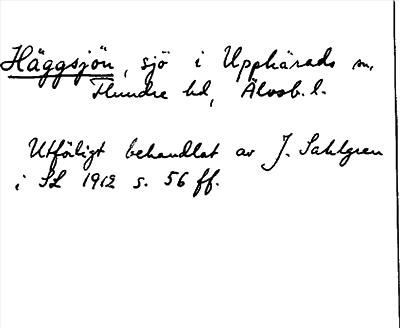 Häggsjön, sjö i Upphärads sn,
Flundre hd, Älvsb. l.
Utförligt behandlat av J. Sahlgren
i SL 1912 s. 56 ff.